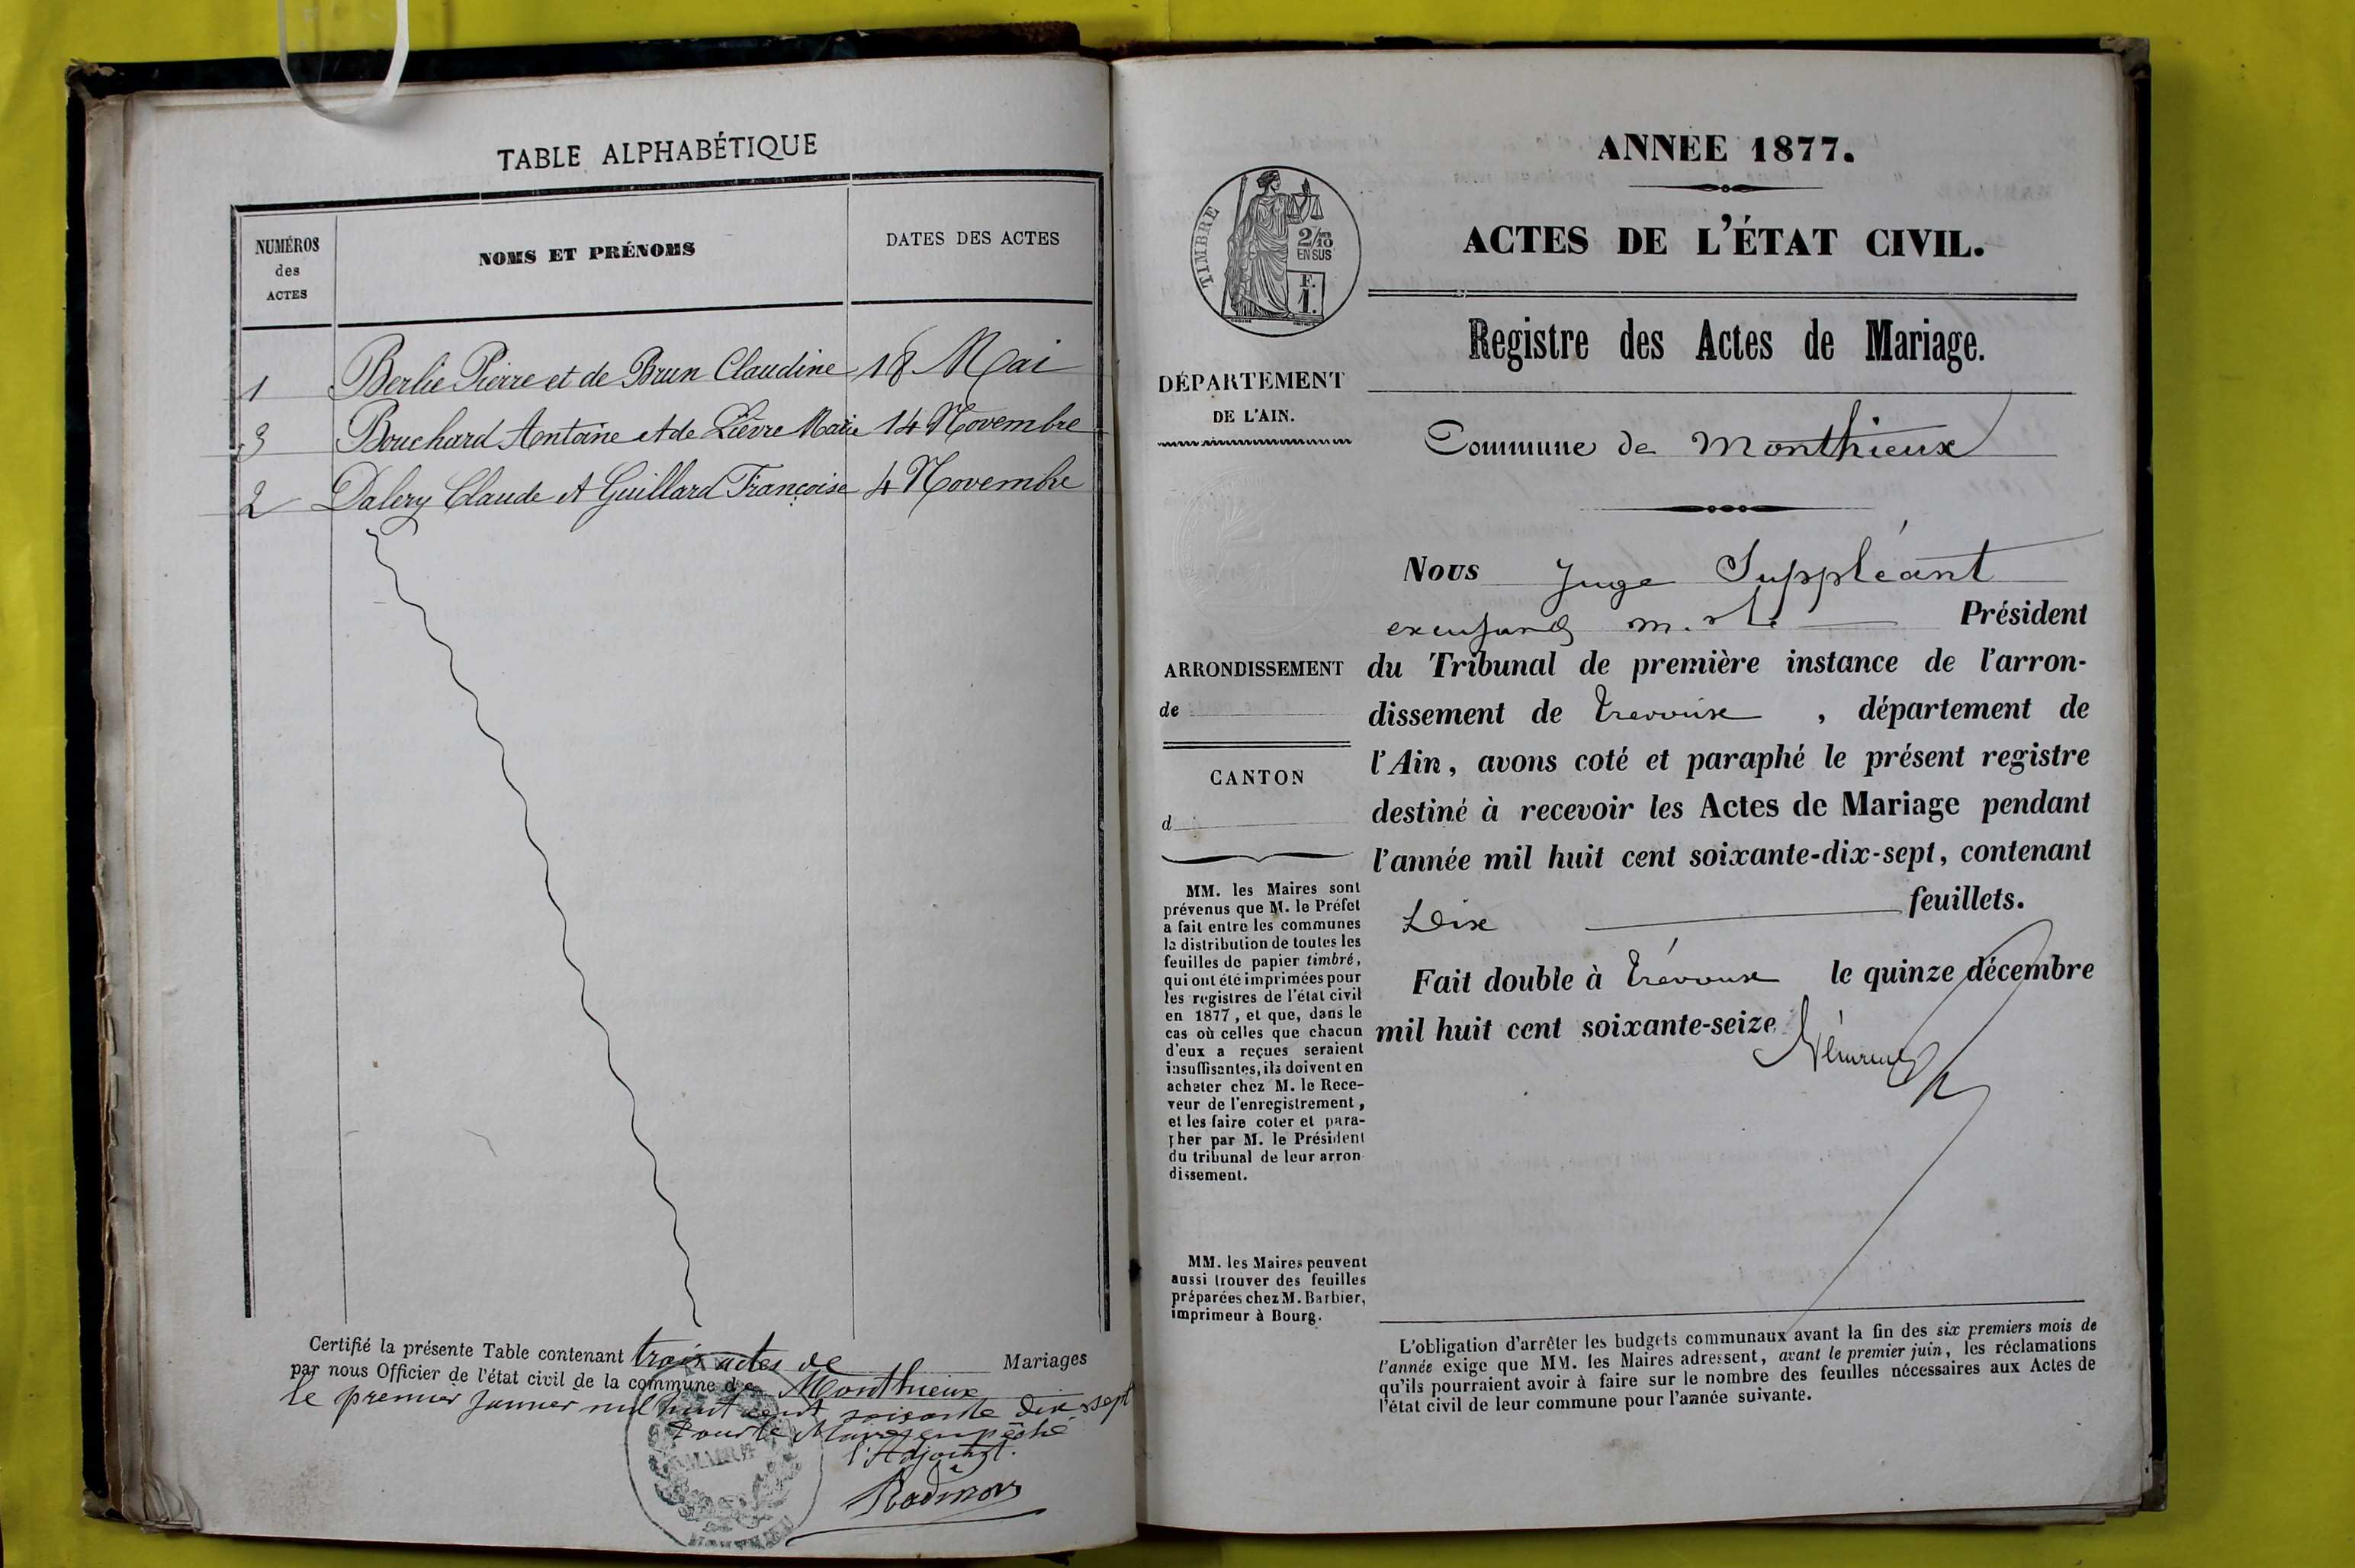 TABLE ALPHABÉTIQUE
NUMÉROS des ACTES
NOMS ET PRÉNOMS
DATES DES ACTES
1 Berlie Pierre et de Brun Claudine 18 Mai
3 Bouchard Antoine et de Lièvre Marie 14 Novembre
2 Dalery Claude et Guillard Françoise 4 Novembre
Certifié la présente Table contenant trois actes de Mariages
par nous Officier de l'état civil de la commune de Monthieux
le premier Janvier mil huit cent soixante dix sept
Pour le Maire empêché
l'Adjoint.
MAIRIE
ANNÉE 1877.
ACTES DE L'ÉTAT CIVIL.
Registre des Actes de Mariage.
Commune de Monthieux
TIMBRE
2/10
EN SUS
F.
1.
DÉPARTEMENT
DE L'AIN.
ARRONDISSEMENT
de
CANTON
d
MM. les Maires sont
prévenus que M. le Préfet
a fait entre les communes
la distribution de toutes les
feuilles de papier timbré,
qui ont été imprimées pour
les registres de l'état civil
en 1877, et que, dans le
cas où celles que chacun
d'eux a reçues seraient
insuffisantes, ils doivent en
acheter chez M. le Rece-
veur de l'enregistrement,
et les faire coter et para-
pher par M. le Président
du tribunal de leur arron-
dissement.
MM. les Maires peuvent
aussi trouver des feuilles
préparées chez M. Barbier,
imprimeur à Bourg.
Nous Juge Suppléant
Président
du Tribunal de première instance de l'arron-
dissement de Trevoux, département de
l'Ain, avons coté et paraphé le présent registre
destiné à recevoir les Actes de Mariage pendant
l'année mil huit cent soixante-dix-sept, contenant
Dix feuillets.
Fait double à Trévoux le quinze décembre
mil huit cent soixante-seize
L'obligation d'arrêter les budgets communaux avant la fin des six premiers mois de
l'année exige que MM. les Maires adressent, avant le premier juin, les réclamations
qu'ils pourraient avoir à faire sur le nombre des feuilles nécessaires aux Actes de
l'état civil de leur commune pour l'année suivante.